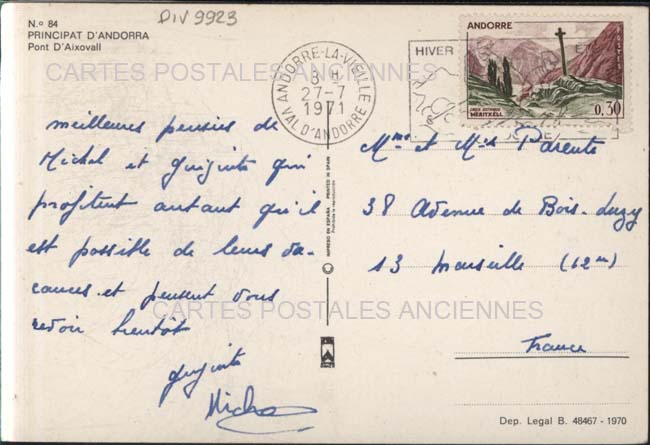 DIV 9923
N.º 84
PRINCIPAT D'ANDORRA
Pont D'Aixovall
ANDORRE-LA-VIEILLE
8 H
27-7
1971
VAL D'ANDORRE
HIVER
ET
ANDORRE
POSTES
CROIX GOTHIQUE
MERITXELL
0,30
CARTES POSTALES ANCIENNES
meilleures pensées de
Michel et guiguite qui
profitent autant qu'il
est possible de leurs va-
cances et pensent vous
revoir bientôt
guiguite
Michel
IMPRESO EN ESPAÑA PRINTED IN SPAIN
Prohibida la reproducción
Mme et Mr Parente
38 Avenue de Bois-Luzy
13 Marseille (12m)
France
CARTES POSTALES ANCIENNES
Dep. Legal B. 48467 - 1970